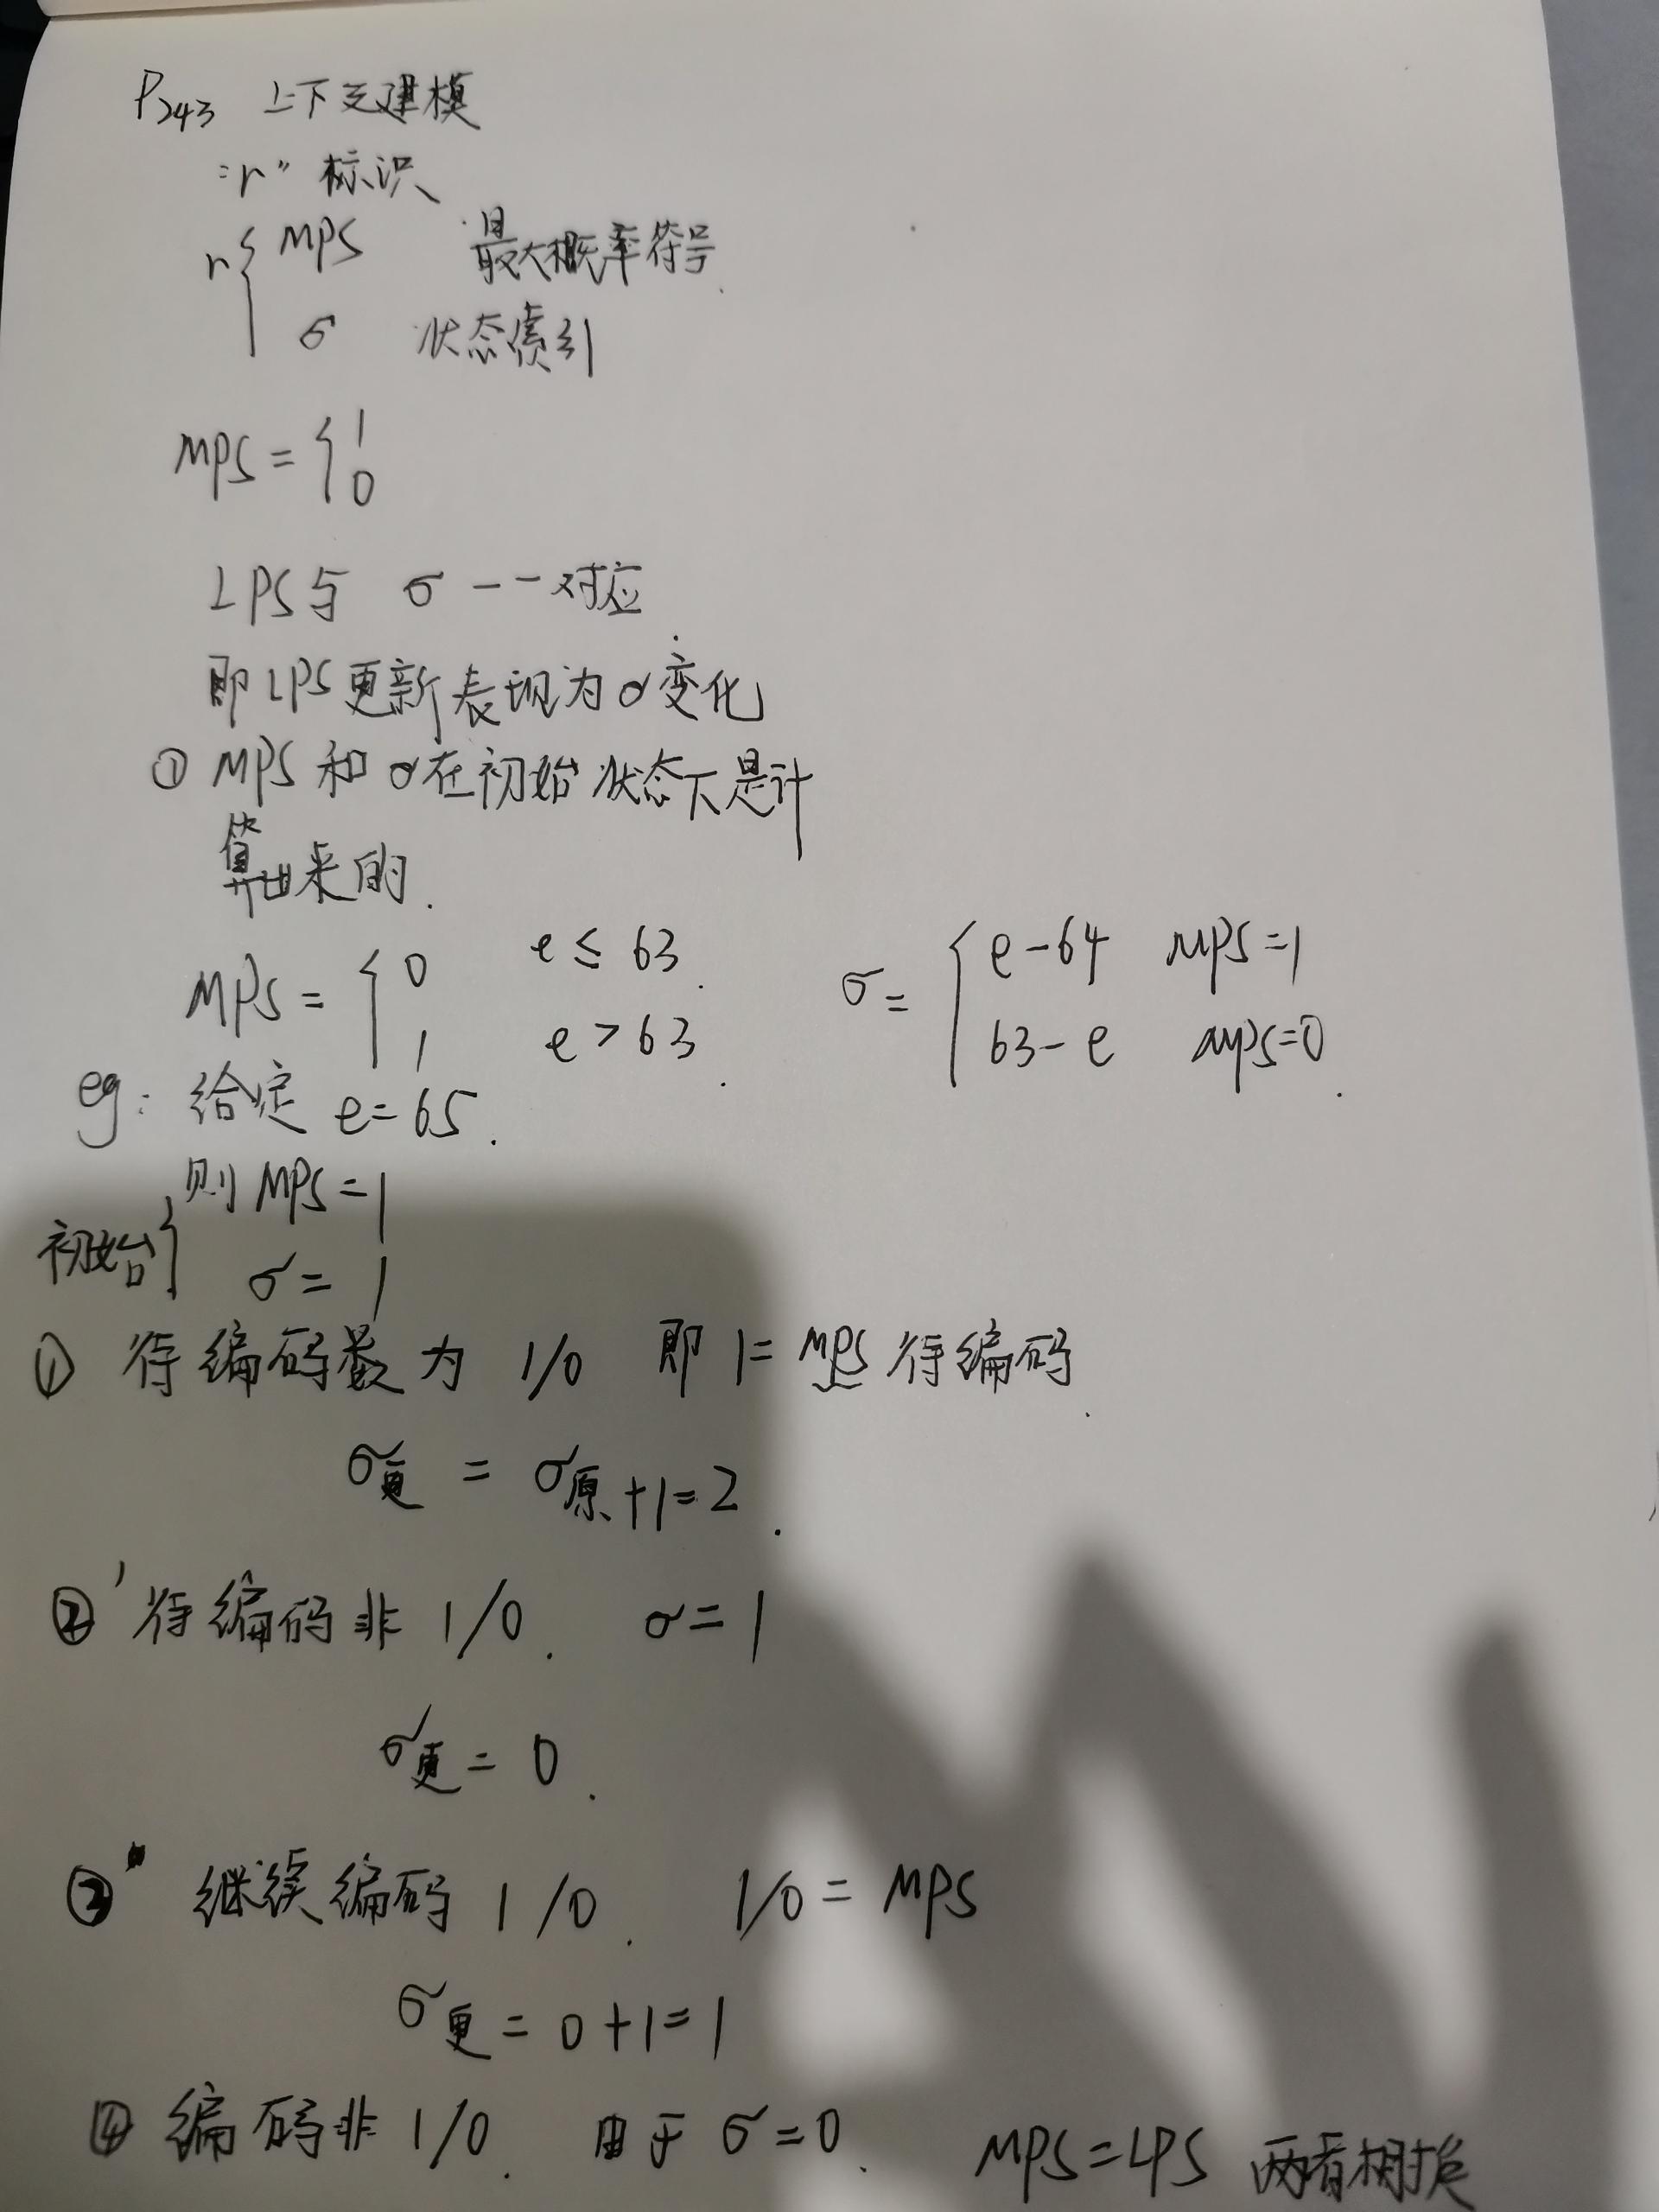 P243 上下文建模
“r” 标识
r { MPS 最大概率符号
σ 状态索引
MPS = { 1
0
LPS与 σ 一一对应
即LPS更新表现为σ变化
① MPS 和 σ在初始状态下是计
算出来的.
MPS = { 0 e ≤ 63. σ = { e-64 MPS=1
1 e > 63. 63-e MPS=0.
eg: 给定 e=65.
则 MPS=1
初始{
σ = 1
① 待编码数为 1/0 即 1= MPS 待编码.
σ更 = σ原+1=2.
② 待编码非 1/0. σ=1
σ更 = 0.
③ 继续编码 1/0. 1/0 = MPS
σ更 = 0+1=1
④ 编码非 1/0. 由于 σ=0. MPS=LPS 两者相换